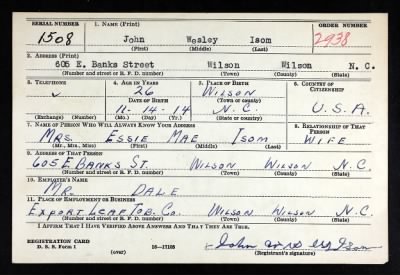 SERIAL NUMBER 1. NAME (Print) ORDER NUMBER
1508 John Wesley Isom 2938
(First) (Middle) (Last)
2. ADDRESS (Print)
605 E. Banks Street Wilson Wilson N. C.
(Number and street or R. F. D. number) (Town) (County) (State)
3. TELEPHONE 4. AGE IN YEARS 5. PLACE OF BIRTH 6. COUNTRY OF CITIZENSHIP
26 WILSON
DATE OF BIRTH (Town or county)
11-14-14 N.C. U.S.A.
(Exchange) (Number) (Mo.) (Day) (Yr.) (State or country)
7. NAME OF PERSON WHO WILL ALWAYS KNOW YOUR ADDRESS 8. RELATIONSHIP OF THAT PERSON
MRS. ESSIE MAE ISOM WIFE
(Mr., Mrs., Miss) (First) (Middle) (Last)
9. ADDRESS OF THAT PERSON
605 E BANKS ST. WILSON WILSON N.C.
(Number and street or R. F. D. number) (Town) (County) (State)
10. EMPLOYER'S NAME
MR. DALE
11. PLACE OF EMPLOYMENT OR BUSINESS
EXPORT LEAF TOB. CO. WILSON WILSON N.C.
(Number and street or R. F. D. number) (Town) (County) (State)
I AFFIRM THAT I HAVE VERIFIED ABOVE ANSWERS AND THAT THEY ARE TRUE.
REGISTRATION CARD
D. S. S. Form 1 (over) 16—17105 (Registrant's signature)
John Isom